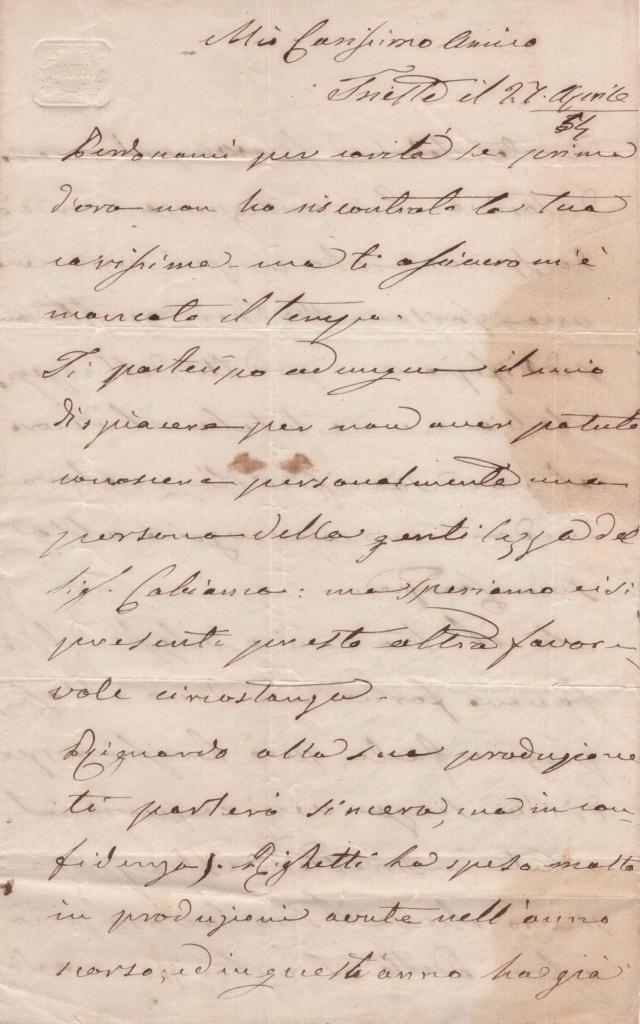 Mio Carissimo Amico
Trieste il 27. Aprile
54
Perdonami per carità se prima
d'ora non ho riscontrato la tua
carissima - ma ti assicuro m'è
mancato il tempo.
Ti partecipo adunque il mio
dispiacere per non aver potuto
conoscere personalmente una
persona della gentilezza del
Sigr. Cabianca: ma speriamo ci si
presenti presto altra favore-
vole circostanza.
Riguardo alla sua produzione
ti parlerò sincero, ma in con-
fidenza). Righetti ha speso molto
in produzioni avute nell'anno
scorso, ed in quest'anno ha già